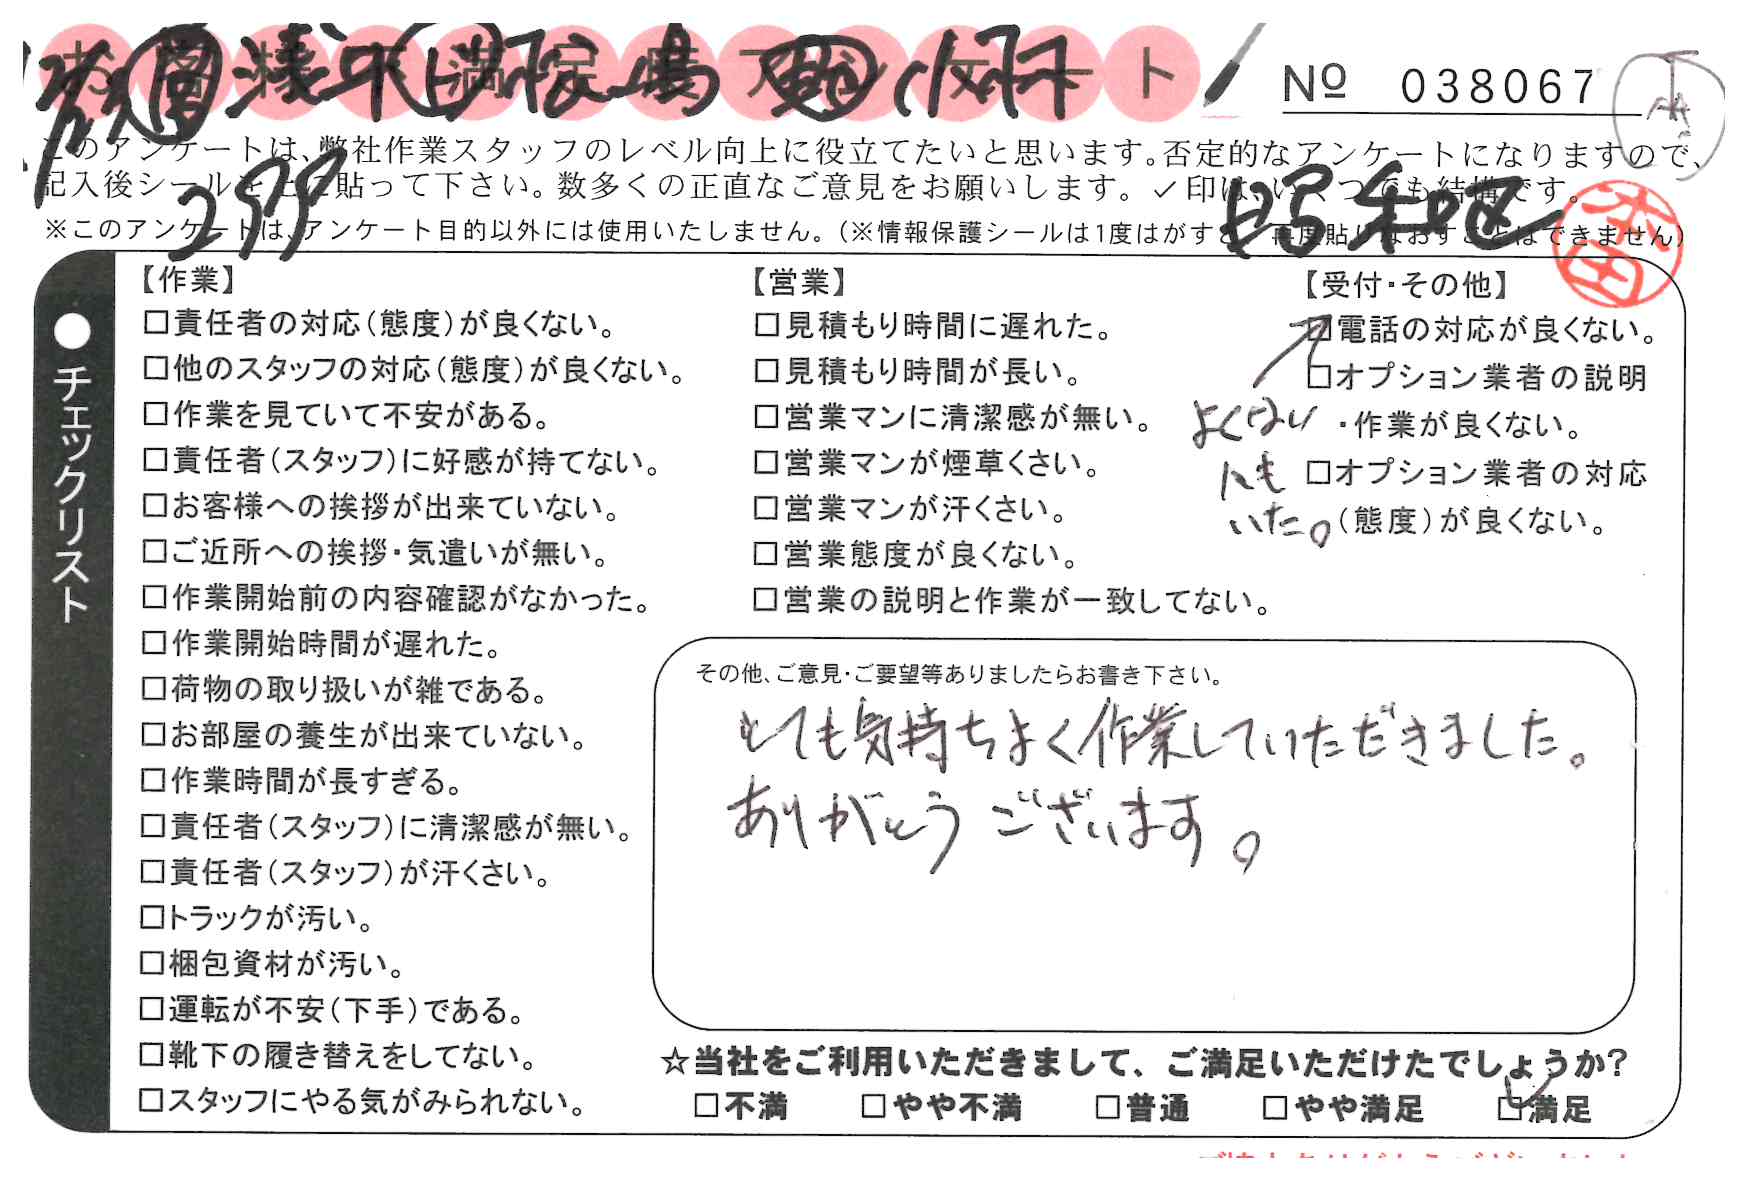 お客様不満足度アンケート
№ 038067
このアンケートは、弊社作業スタッフのレベル向上に役立てたいと思います。否定的なアンケートになりますので、
記入後シールを上に貼って下さい。数多くの正直なご意見をお願いします。✓印は、いくつでも結構です。
※このアンケートは、アンケート目的以外には使用いたしません。(※情報保護シールは1度はがすと、再度貼りなおすことはできません)
299
昭和区
本田
●チェックリスト
【作業】
□責任者の対応(態度)が良くない。
□他のスタッフの対応(態度)が良くない。
□作業を見ていて不安がある。
□責任者(スタッフ)に好感が持てない。
□お客様への挨拶が出来ていない。
□ご近所への挨拶・気遣いが無い。
□作業開始前の内容確認がなかった。
□作業開始時間が遅れた。
□荷物の取り扱いが雑である。
□お部屋の養生が出来ていない。
□作業時間が長すぎる。
□責任者(スタッフ)に清潔感が無い。
□責任者(スタッフ)が汗くさい。
□トラックが汚い。
□梱包資材が汚い。
□運転が不安(下手)である。
□靴下の履き替えをしてない。
□スタッフにやる気がみられない。
【営業】
□見積もり時間に遅れた。
□見積もり時間が長い。
□営業マンに清潔感が無い。
□営業マンが煙草くさい。
□営業マンが汗くさい。
□営業態度が良くない。
□営業の説明と作業が一致してない。
【受付・その他】
□電話の対応が良くない。
□オプション業者の説明
・作業が良くない。
□オプション業者の対応
(態度)が良くない。
よくない
人も
いた。
その他、ご意見・ご要望等ありましたらお書き下さい。
とても気持ちよく作業していただきました。
ありがとうございます。
☆当社をご利用いただきまして、ご満足いただけたでしょうか?
□不満 □やや不満 □普通 □やや満足 ☑満足